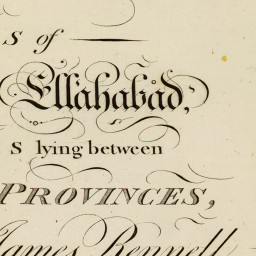 s of
Ellahabad,
s lying between
PROVINCES,
James Rennell